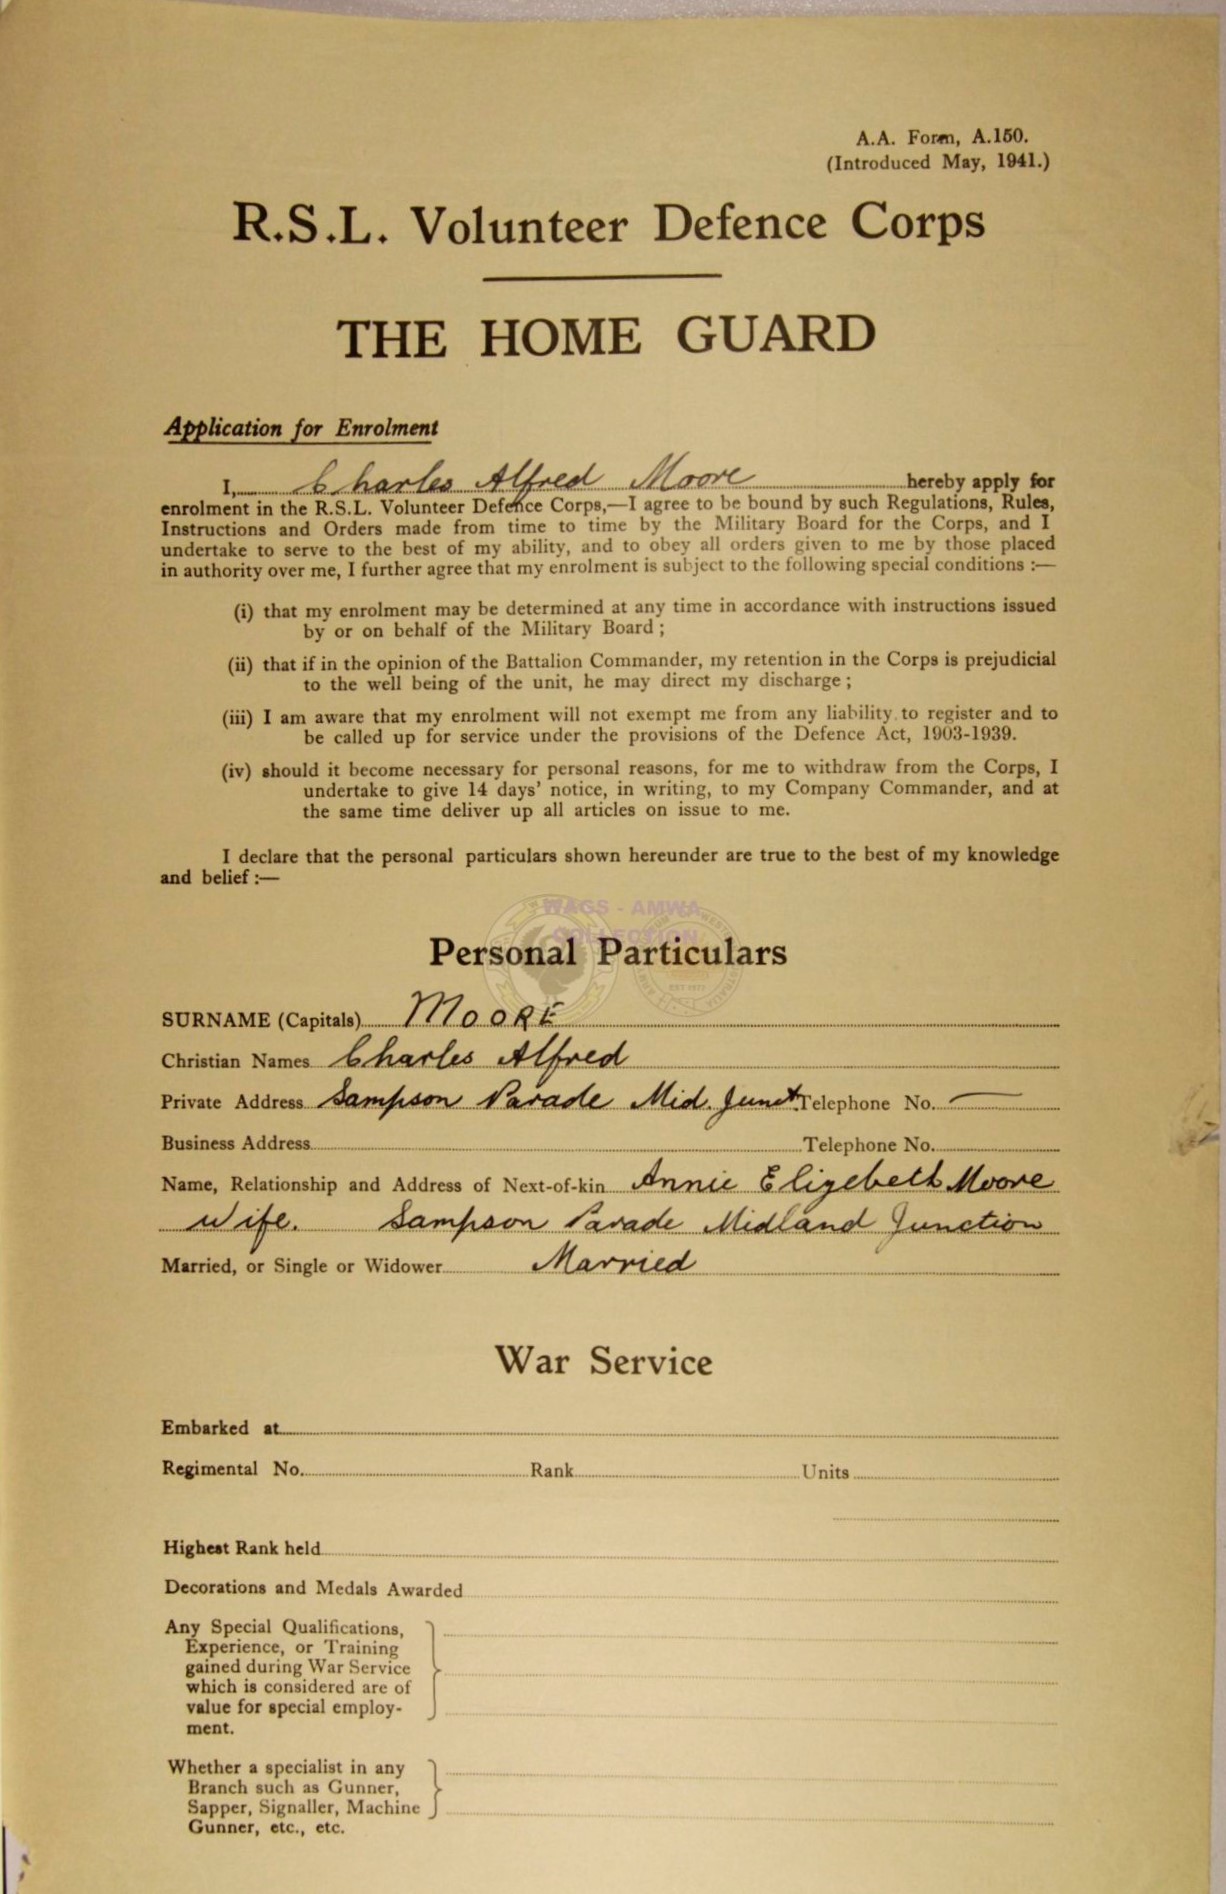 A.A. Form, A.150.
(Introduced May, 1941.)
R.S.L. Volunteer Defence Corps
THE HOME GUARD
Application for Enrolment
I, Charles Alfred Moore hereby apply for
enrolment in the R.S.L. Volunteer Defence Corps,—I agree to be bound by such Regulations, Rules,
Instructions and Orders made from time to time by the Military Board for the Corps, and I
undertake to serve to the best of my ability, and to obey all orders given to me by those placed
in authority over me, I further agree that my enrolment is subject to the following special conditions :—
(i) that my enrolment may be determined at any time in accordance with instructions issued
by or on behalf of the Military Board ;
(ii) that if in the opinion of the Battalion Commander, my retention in the Corps is prejudicial
to the well being of the unit, he may direct my discharge ;
(iii) I am aware that my enrolment will not exempt me from any liability to register and to
be called up for service under the provisions of the Defence Act, 1903-1939.
(iv) should it become necessary for personal reasons, for me to withdraw from the Corps, I
undertake to give 14 days' notice, in writing, to my Company Commander, and at
the same time deliver up all articles on issue to me.
I declare that the personal particulars shown hereunder are true to the best of my knowledge
and belief :—
WAGS - AMWA
COLLECTION
Personal Particulars
SURNAME (Capitals) MOORE
Christian Names Charles Alfred
Private Address Sampson Parade Mid. Junct. Telephone No. —
Business Address Telephone No.
Name, Relationship and Address of Next-of-kin Annie Elizebeth Moore
Wife. Sampson Parade Midland Junction
Married, or Single or Widower Married
War Service
Embarked at
Regimental No. Rank Units
Highest Rank held
Decorations and Medals Awarded
Any Special Qualifications,
Experience, or Training
gained during War Service
which is considered are of
value for special employ-
ment.
Whether a specialist in any
Branch such as Gunner,
Sapper, Signaller, Machine
Gunner, etc., etc.